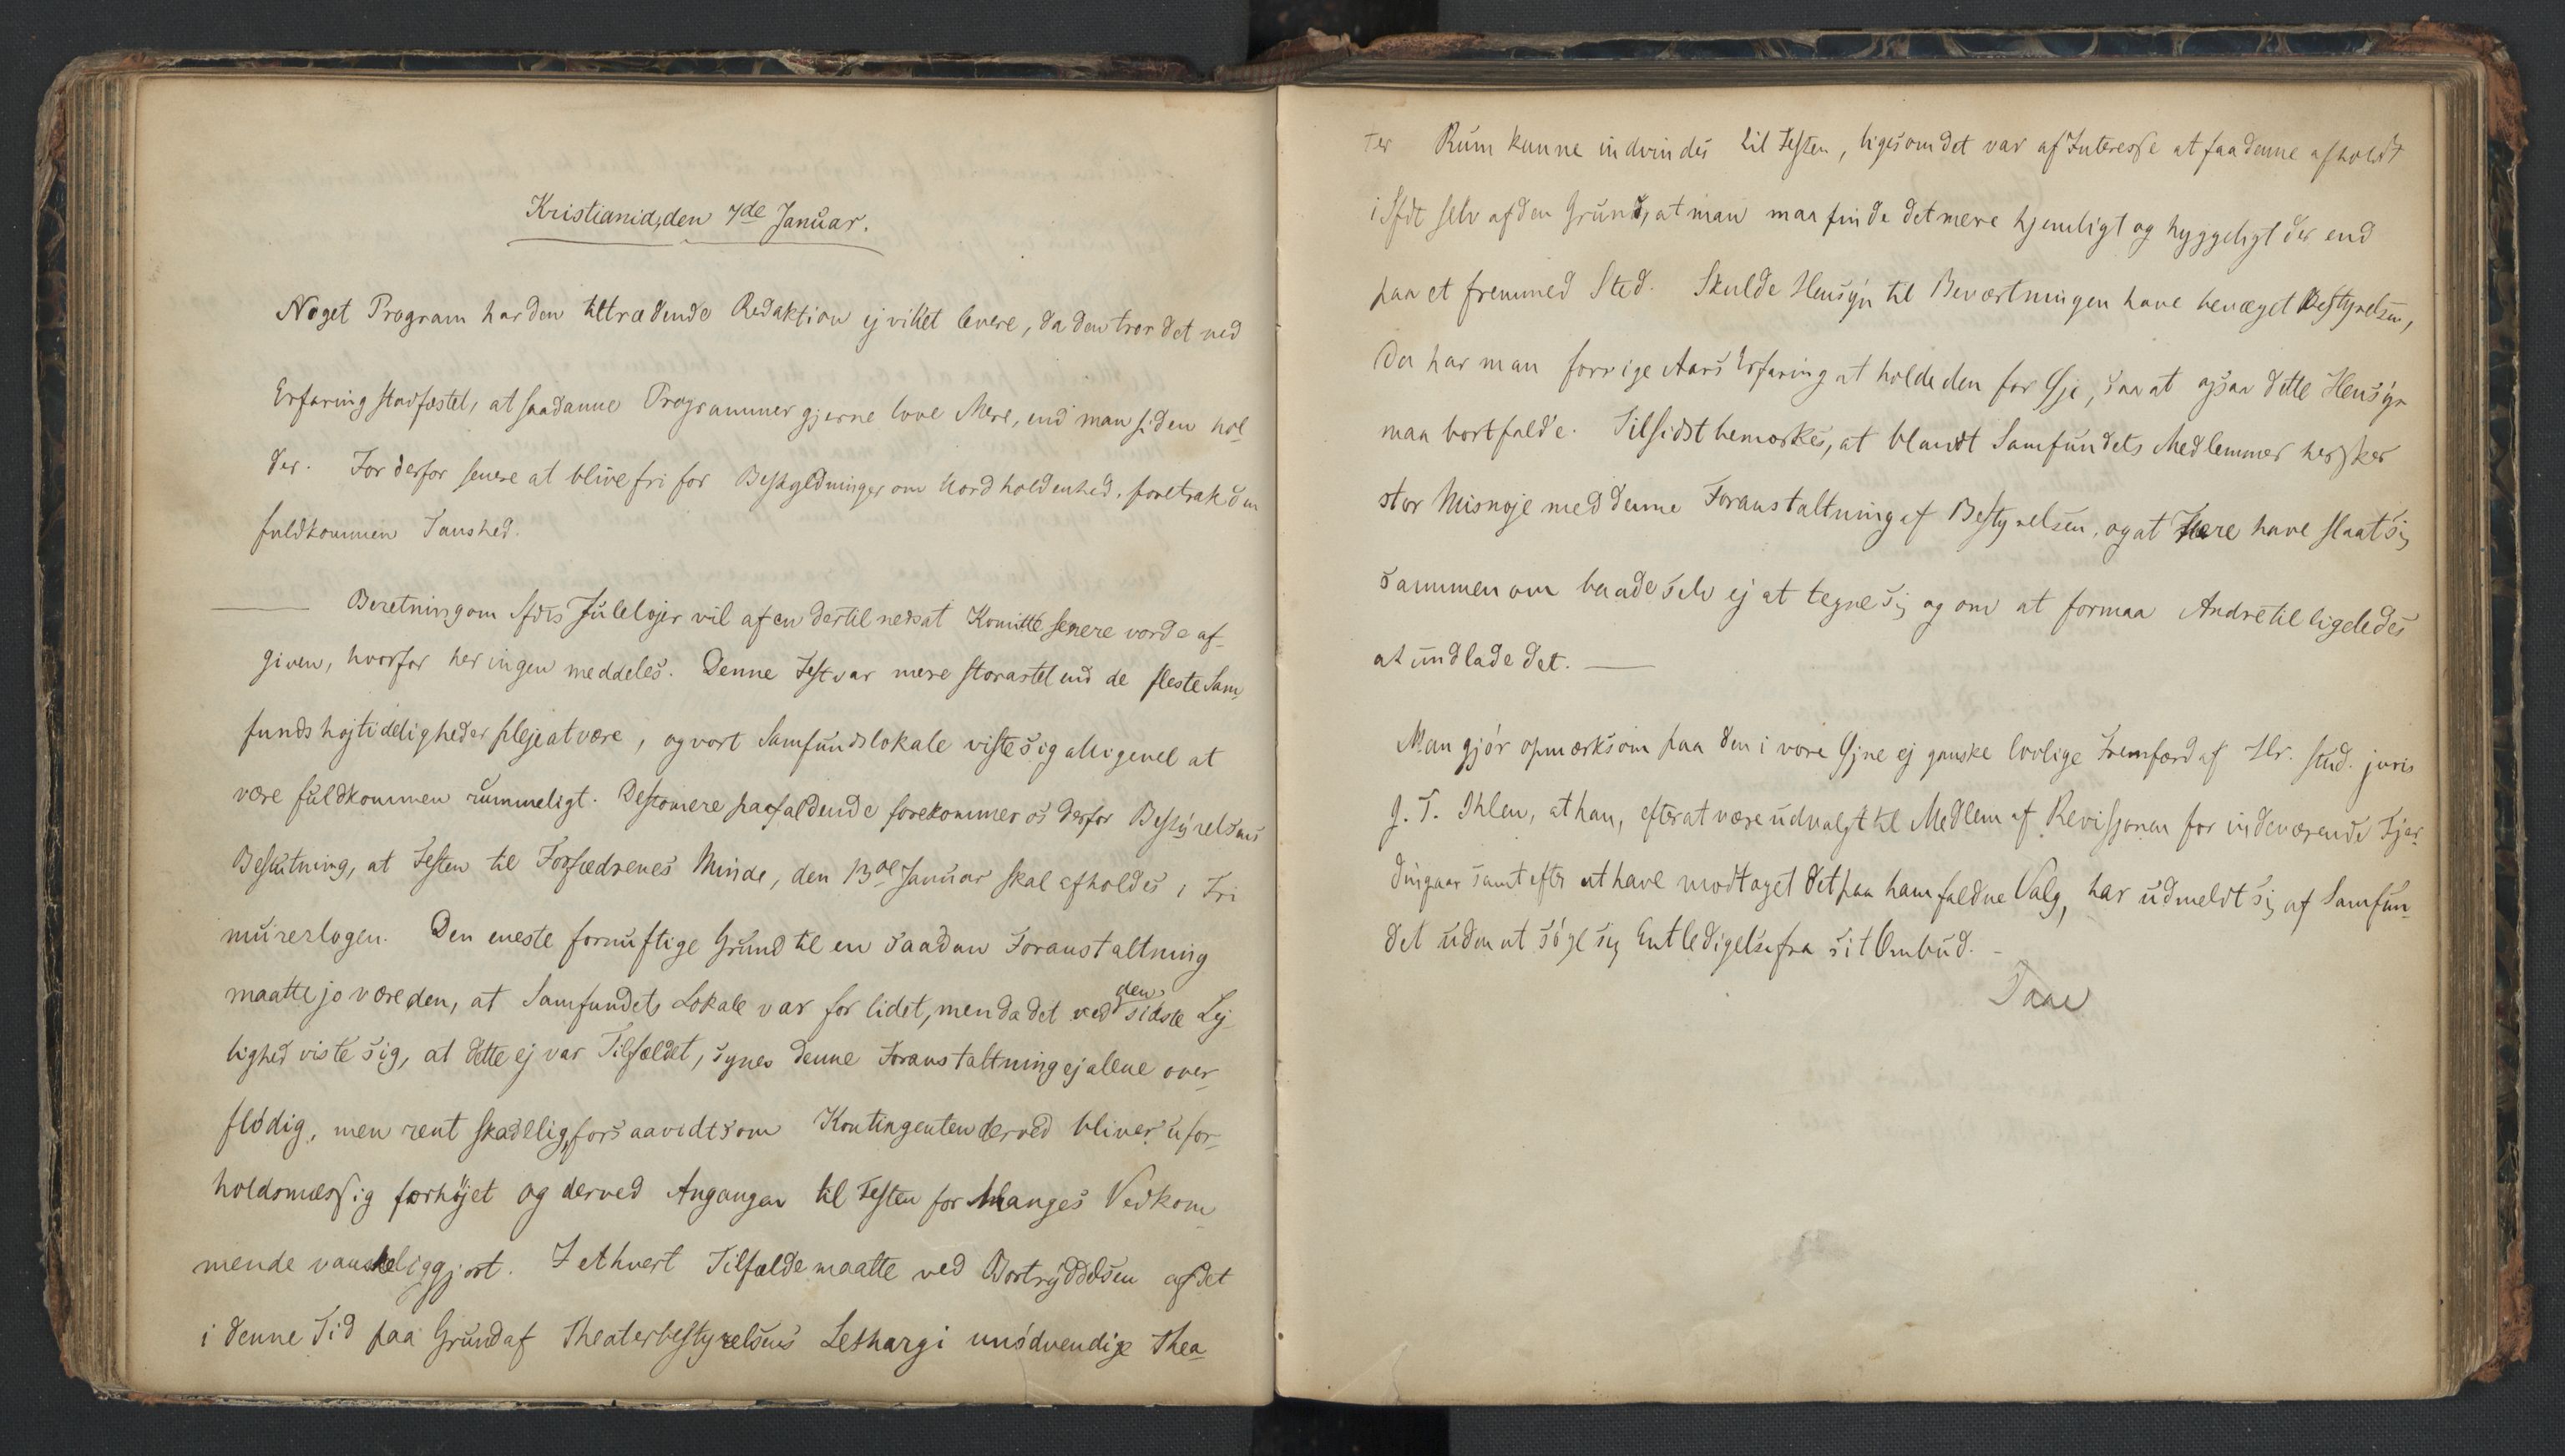 Kristiania, den 7de Januar.
Noget Program har den tiltrædende Redaktion ej villet levere, da den tror det ved
Erfaring stadfæstet, at saadanne Programmer gjerne love Mere, end man siden hol-
der. For derfor senere at blive fri for Beskyldninger om Uordholdenhed, foretrak den
fuldkommen Taushed.
Beretning om Sfdts Juleløjer vil af en dertil nedsat Komitte senere vorde af-
given, hvorfor her ingen meddeles. Denne Fest var mere storartet end de fleste Sam-
fundshøjtideligheder pleje at være, og vort Samfundslokale viste sig alligevel at
være fuldkommen rummeligt. Destomere paafaldende forekommer os derfor Bestyrelsens
Beslutning, at Festen til Forfædrenes Minde, den 13de Januar skal afholdes i Fri
murerlogen. Den eneste fornuftige Grund til en saadan Foranstaltning
maatte jo være den, at Samfundets Lokale var for lidet, men da det ved den sidste Lej
lighed viste sig, at dette ej var Tilfældet, synes denne Foranstaltning ej alene over-
flødig, men rent skadelig, forsaavidtsom Kontingenten derved bliver ufor-
holdsmæssig forhøjet og derved Angangen til Festen for Manges Vedkom-
mende vanskeliggjort. I ethvert Tilfælde maatte ved Bortryddelsen af det
i denne Tid paa Grund af Theaterbestyrelsens Lethargi unødvendige Thea-
ter Rum kunne indvindes til Festen, ligesom det var af Interesse at faa denne afholdt
i Sfdt selv af den Grund, at man maa finde det mere hjemligt og hyggeligt der end
paa et fremmed Sted. Skulde Hensyn til Beværtningen have bevæget Bestyrelsen,
da har man forrige Aars Erfaring at holde den for Øje, saa at ogsaa dette Hensyn
maa bortfalde. Tilsidst bemærkes, at blandt Samfundets Medlemmer hersker
stor Misnøje med denne Foranstaltning af Bestyrelsen, og at Flere have slaat sig
sammen om baade selv ej at tegne sig og om at formaa Andre til ligeledes
at undlade det.
Man gjør opmærksom paa den i vore Øjne ej ganske lovlige Fremfærd af Hr. stud. juris
J. T. Ihlen, at han, efter at være udvalgt til Medlem af Revisjonen for indeværende Fjer-
dingaar samt efter at have modtaget det paa ham faldne Valg, har udmeldt sig af Samfun-
det uden at søge sig Entledigelse fra sit Ombud.